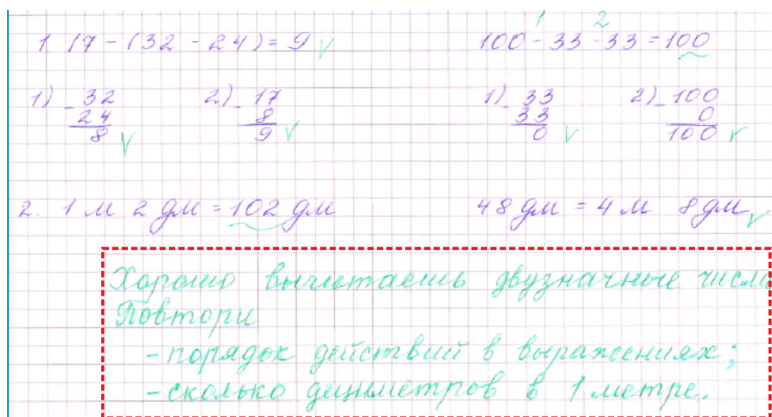 1. 17 - (32 - 24) = 9 √
1 2
100 - 33 - 33 = 100
1) - 32 2) - 17 1) - 33 2) - 100
24 8 33 0
8 √ 9 √ 0 √ 100 √
2. 1 м 2 дм = 102 дм 48 дм = 4 м 8 дм √
Хорошо вычитаешь двузначные числа
Повтори
- порядок действий в выражениях;
- сколько дециметров в 1 метре.